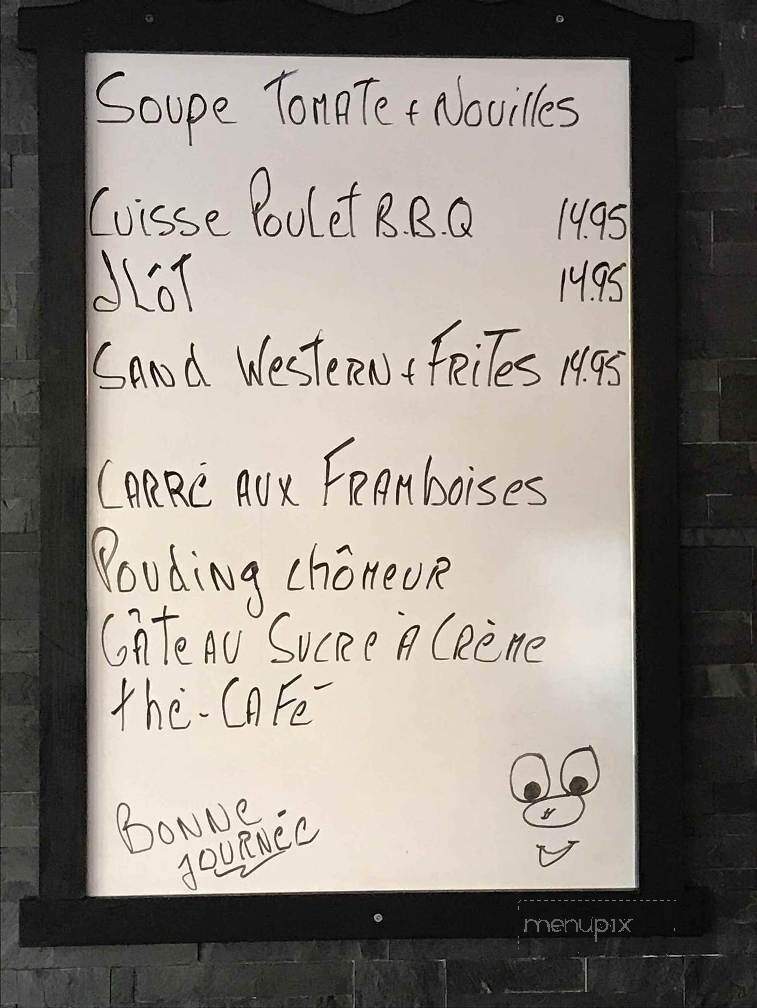 Soupe Tomate + Nouilles
Cuisse Poulet B.B.Q 14.95
14.95
Sand Western + Frites 14.95
Carré aux Framboises
Pouding chômeur
Gâteau Sucre à Crème
thé - Café
Bonne
journée
menupix